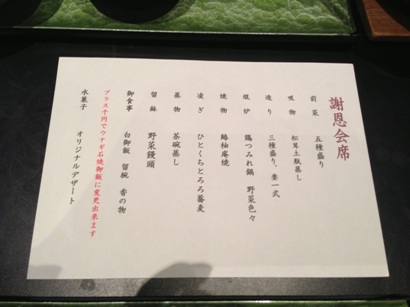 謝恩会席
前菜 五種盛り
吸物 松茸土瓶蒸し
造り 三種盛り、妻一式
焜炉 鶏つみれ鍋 野菜色々
焼物 鰆柚庵焼
凌ぎ ひとくちとろろ蕎麦
蒸物 茶碗蒸し
留鉢 野菜饅頭
御食事 白御飯 留椀 香の物
プラス千円でウナギ石焼御飯に変更出来ます
水菓子 オリジナルデザート